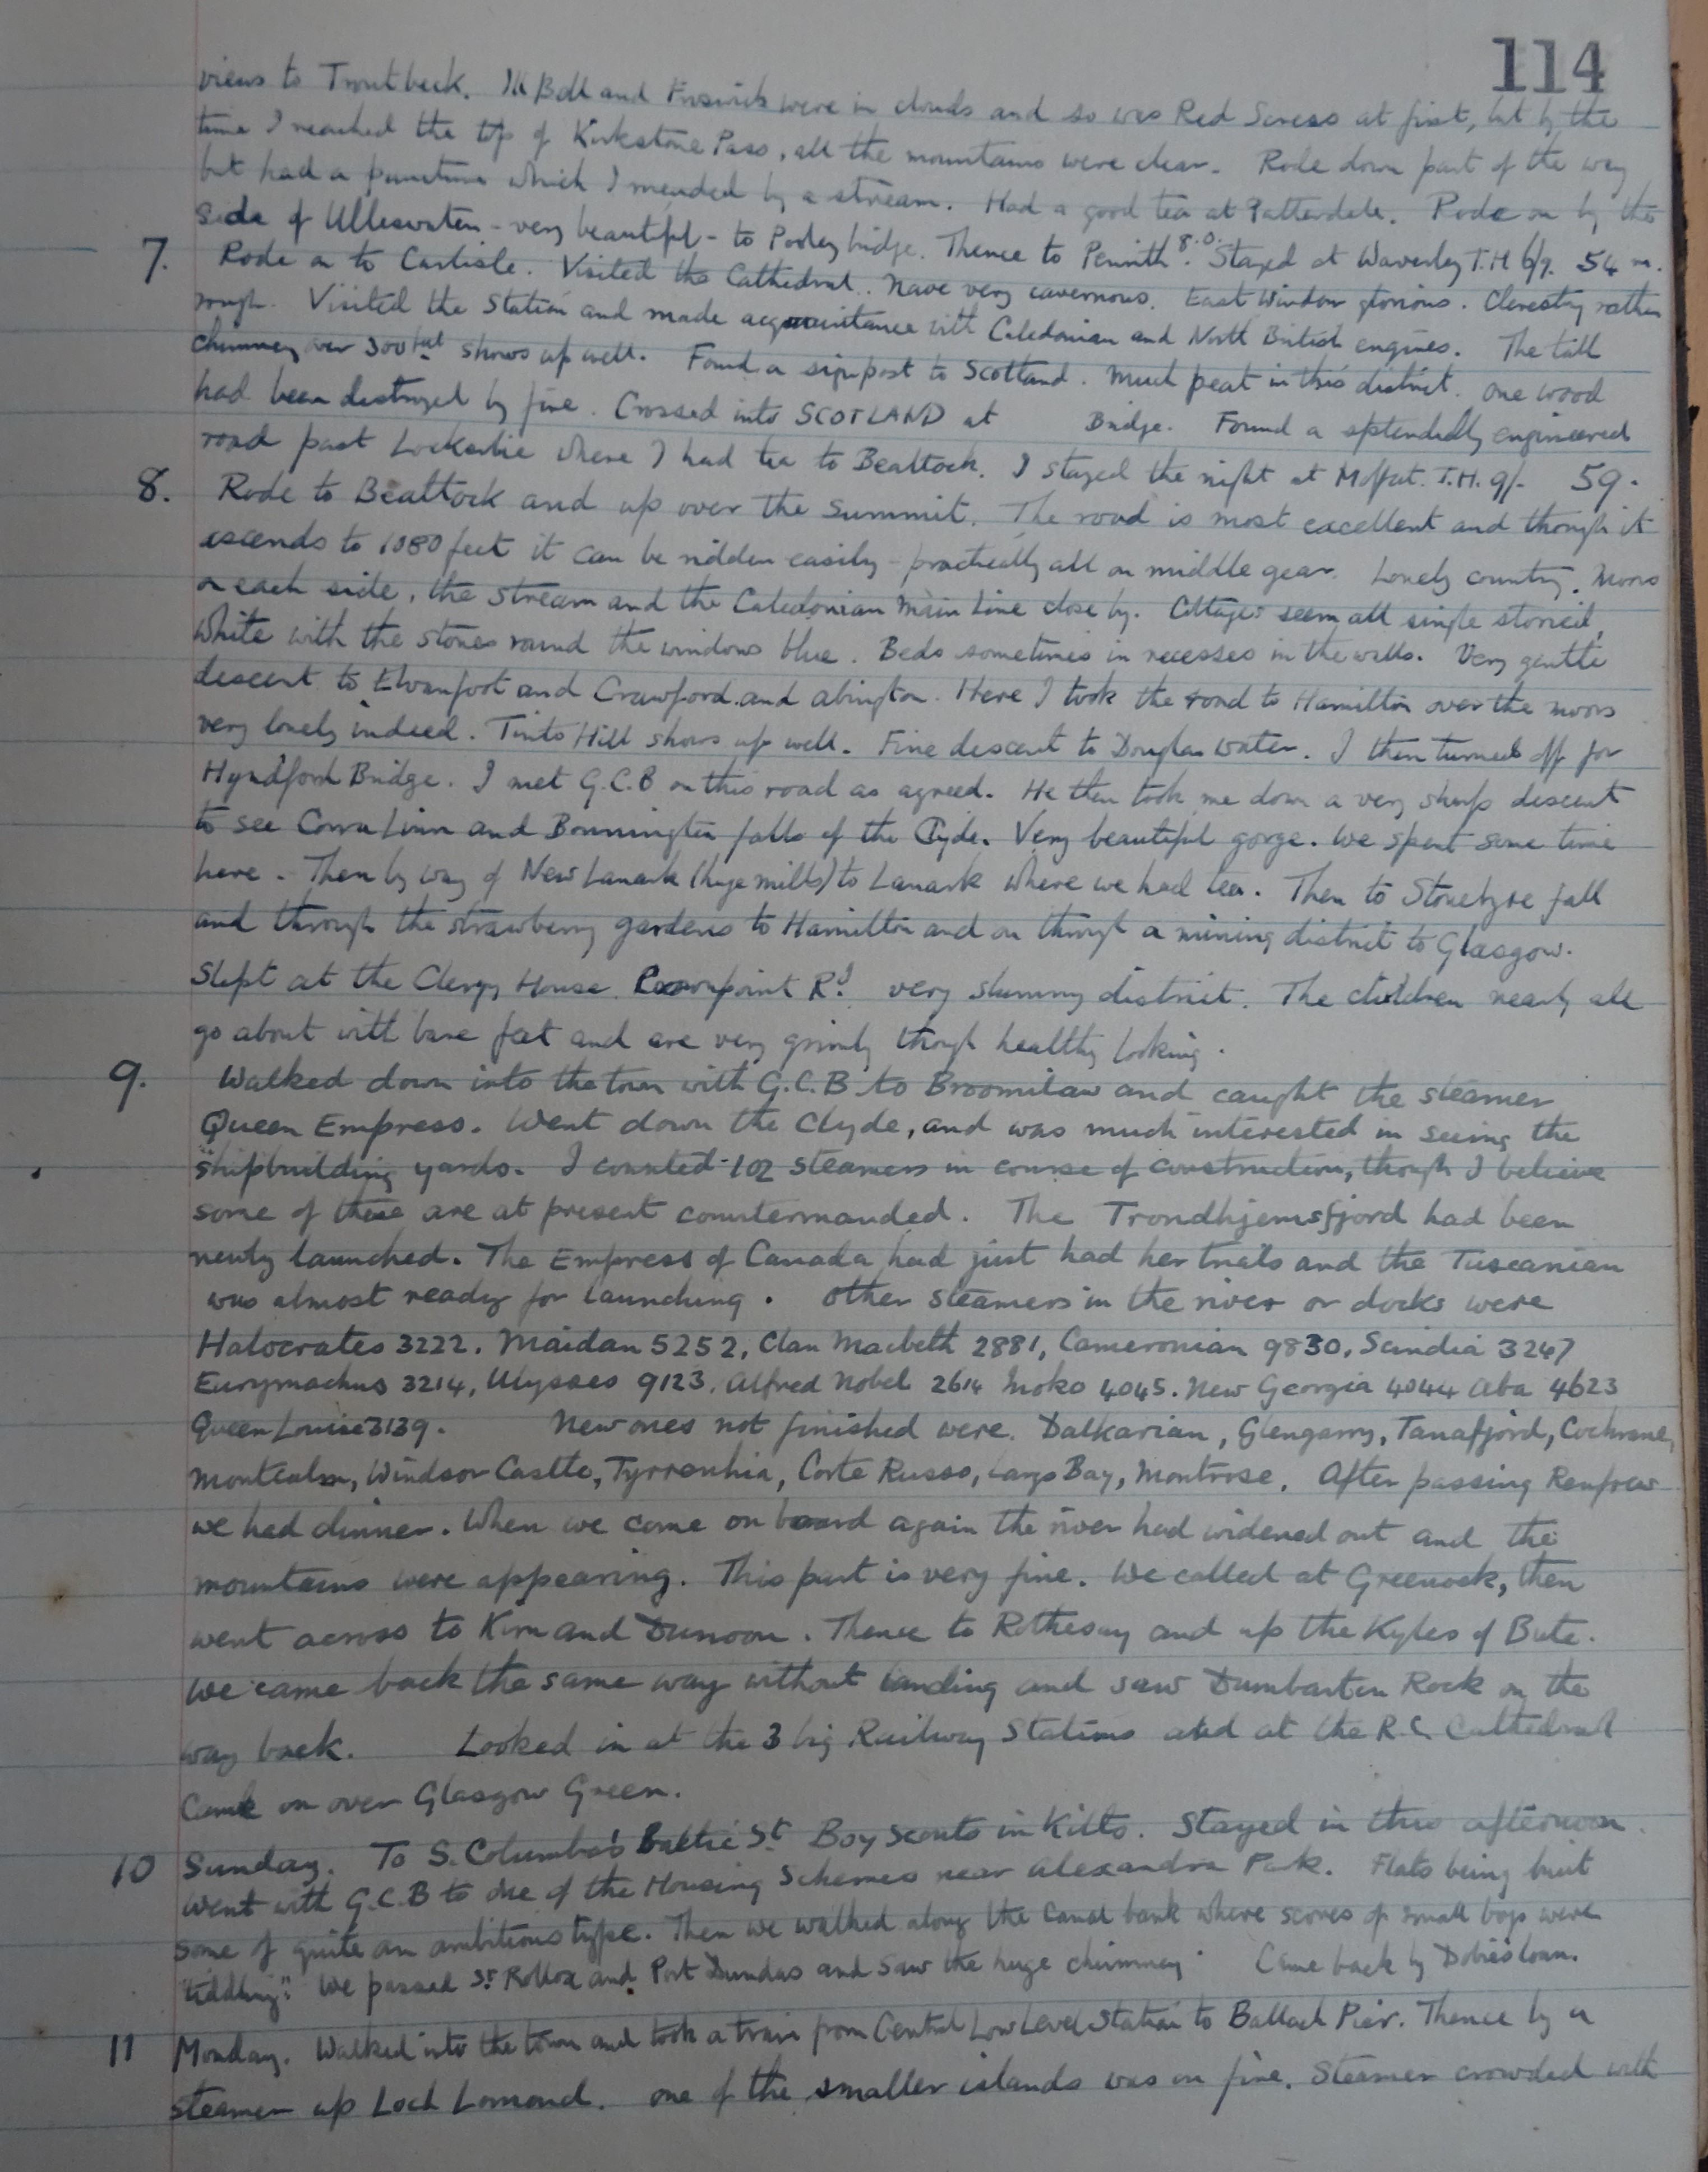 114
views to Troutbeck. Ill Bell and Froswick were in clouds and so was Red Screes at first, but by the
time I reached the top of Kirkstone Pass, all the mountains were clear. Rode down part of the way
but had a puncture which I mended by a stream. Had a good tea at Patterdale. Rode on by the
side of Ulleswater - very beautiful - to Pooley bridge. Thence to Penrith 8.0. Stayed at Waverley T.H 6/9. 54 m.
7. Rode on to Carlisle. Visited the Cathedral. Nave very cavernous. East Window glorious. Clerestry rather
rough. Visited the Station and made acquaintance with Caledonian and North British engines. The tall
chimney over 300 feet shows up well. Found a signpost to Scotland. Much peat in this district. One wood
had been destroyed by fire. Crossed into SCOTLAND at Bridge. Found a splendidly engineered
road past Lockerbie where I had tea to Beattock. I stayed the night at Moffat. T.H. 9/- 59.
8. Rode to Beattock and up over the Summit. The road is most excellent and though it
ascends to 1080 feet it can be ridden easily - practically all on middle gear. Lonely country. Moors
on each side, the stream and the Caledonian Main Line close by. Cottages seem all single storied,
white with the stones round the windows blue. Beds sometimes in recesses in the walls. Very gentle
descent to Elvanfoot and Crawford and Abington. Here I took the road to Hamilton over the moors
very lonely indeed. Tinto Hill shows up well. Fine descent to Douglas Water. I then turned off for
Hyndford Bridge. I met G.C.B on this road as agreed. He then took me down a very sharp descent
to see Corra Linn and Bonnington falls of the Clyde. Very beautiful gorge. We spent some time
here. Then by way of New Lanark (huge mills) to Lanark where we had tea. Then to Stonebyre fall
and through the strawberry gardens to Hamilton and on through a mining district to Glasgow.
Slept at the Clergy House Rd. very slummy district. The children nearly all
go about with bare feet and are very grimy though healthy looking.
9. Walked down into the town with G.C.B to Broomilaw and caught the steamer
Queen Empress. Went down the Clyde, and was much interested in seeing the
shipbuilding yards. I counted 102 steamers in course of construction, though I believe
some of these are at present countermanded. The Trondhjemsfjord had been
newly launched. The Empress of Canada had just had her trials and the Tuscanian
was almost ready for launching. Other steamers in the river or docks were
Halocrates 3222. Maidan 5252, Clan Macbeth 2881, Cameronian 9830, Scindia 3247
Eurymachus 3214, Ulysses 9123, Alfred Nobel 2614 Moko 4045. New Georgia 4044 Aba 4623
Queen Louise 3139. New ones not finished were. Dalkarian, Glengarry, Tanafjord, Cochrane,
Montcalm, Windsor Castle, Tyrrenhia, Corte Russo, Largs Bay, Montrose. After passing Renfrew
we had dinner. When we came on board again the river had widened out and the
mountains were appearing. This part is very fine. We called at Greenock, then
went across to Kirn and Dunoon. Thence to Rothesay and up the Kyles of Bute.
We came back the same way without landing and saw Dumbarton Rock on the
way back. Looked in at the 3 big Railway Stations and at the R.C. Cathedral
Came on over Glasgow Green.
10 Sunday. To S. Columba's Baltic St. Boy Scouts in Kilts. Stayed in this afternoon.
Went with G.C.B to one of the Housing Schemes near Alexandra Park. Flats being built
some of quite an ambitious type. Then we walked along the Canal bank where scores of small boys were
"tiddling". We passed St Rollox and Port Dundas and saw the huge chimney. Came back by Dobies loan.
11 Monday. Walked into the town and took a train from Central Low Level Station to Balloch Pier. Thence by a
steamer up Loch Lomond. One of the smaller islands was on fire. Steamer crowded with